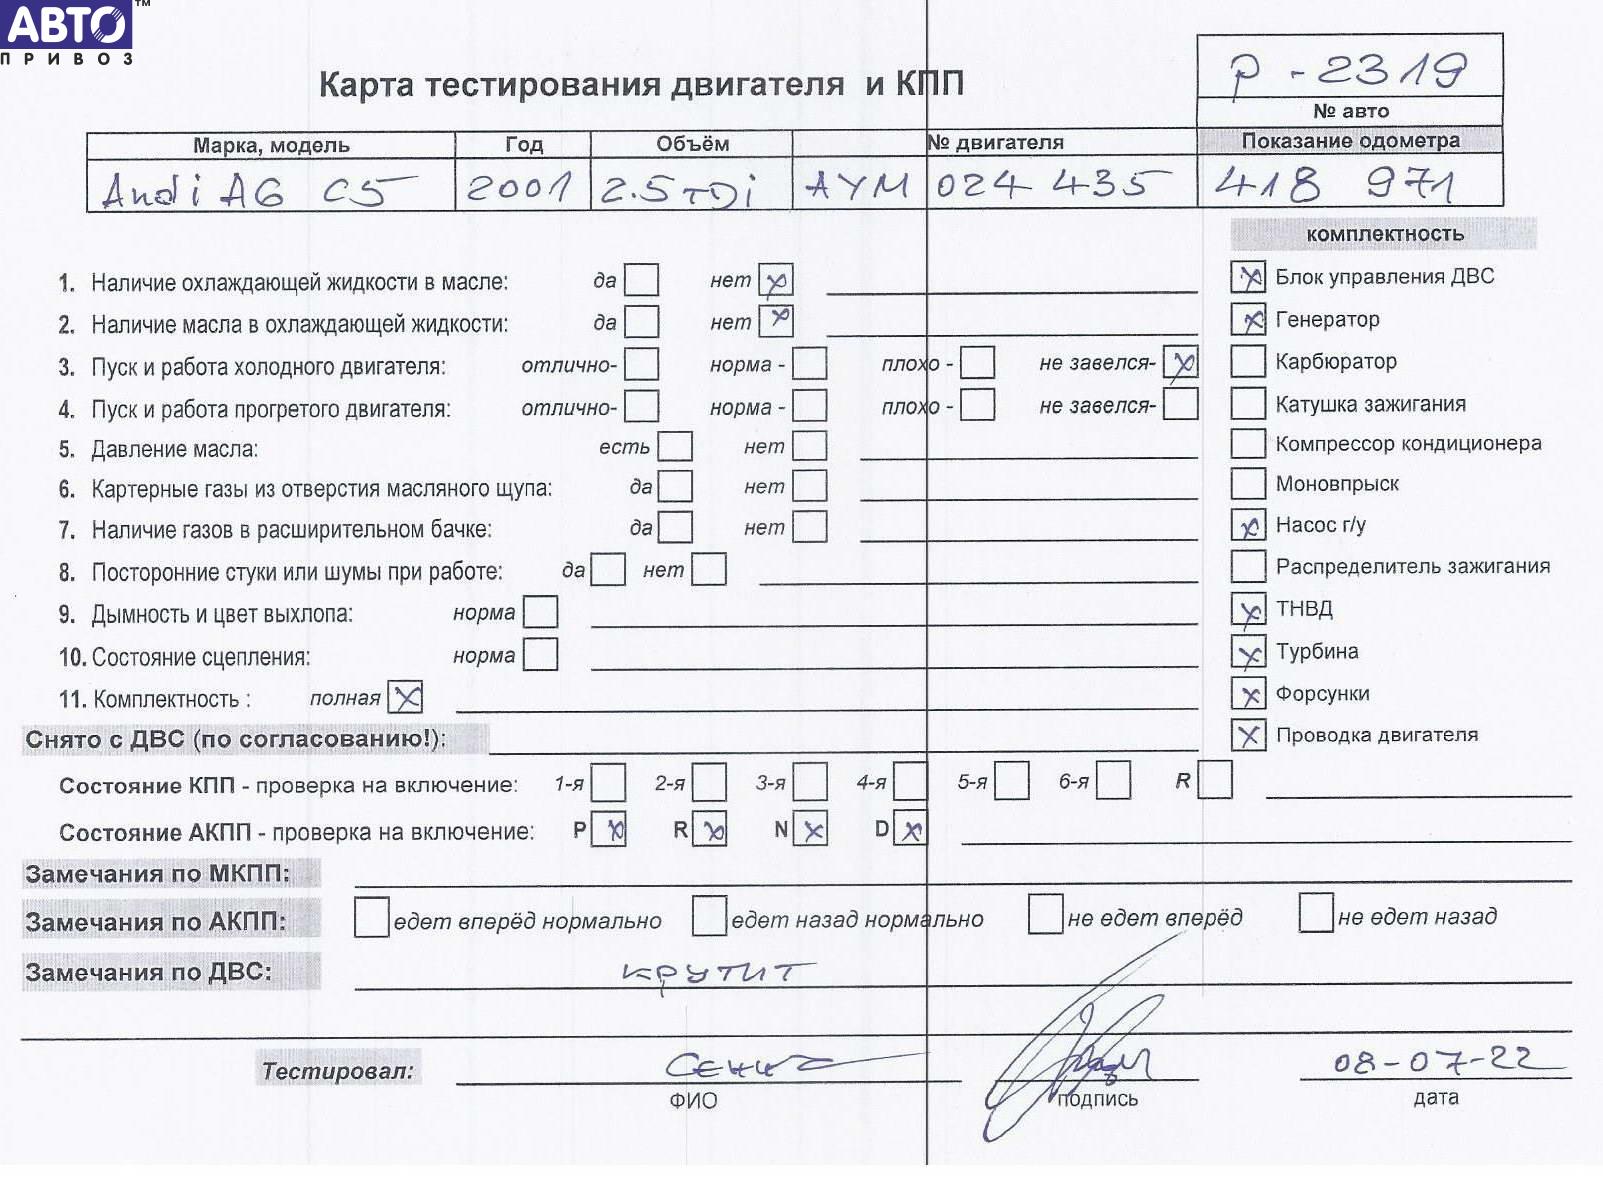 АВТО™
ПРИВОЗ
Р - 2319
Карта тестирования двигателя и КПП
№ авто
Марка, модель Год Объём № двигателя Показание одометра
Audi A6 C5 2001 2.5 TDi AYM 024 435 418 971
комплектность
1. Наличие охлаждающей жидкости в масле: да нет x Блок управления ДВС x
2. Наличие масла в охлаждающей жидкости: да нет x Генератор x
3. Пуск и работа холодного двигателя: отлично- норма - плохо - не завелся- x Карбюратор
4. Пуск и работа прогретого двигателя: отлично- норма - плохо - не завелся- Катушка зажигания
5. Давление масла: есть нет Компрессор кондиционера
6. Картерные газы из отверстия масляного щупа: да нет Моновпрыск
7. Наличие газов в расширительном бачке: да нет x Насос г/у
8. Посторонние стуки или шумы при работе: да нет Распределитель зажигания
9. Дымность и цвет выхлопа: норма x ТНВД
10. Состояние сцепления: норма x Турбина
11. Комплектность : полная x x Форсунки
Снято с ДВС (по согласованию!): x Проводка двигателя
Состояние КПП - проверка на включение: 1-я 2-я 3-я 4-я 5-я 6-я R
Состояние АКПП - проверка на включение: P x R x N x D x
Замечания по МКПП:
Замечания по АКПП: едет вперёд нормально едет назад нормально не едет вперёд не едет назад
Замечания по ДВС: крутит
Тестировал: 08-07-22
ФИО подпись дата